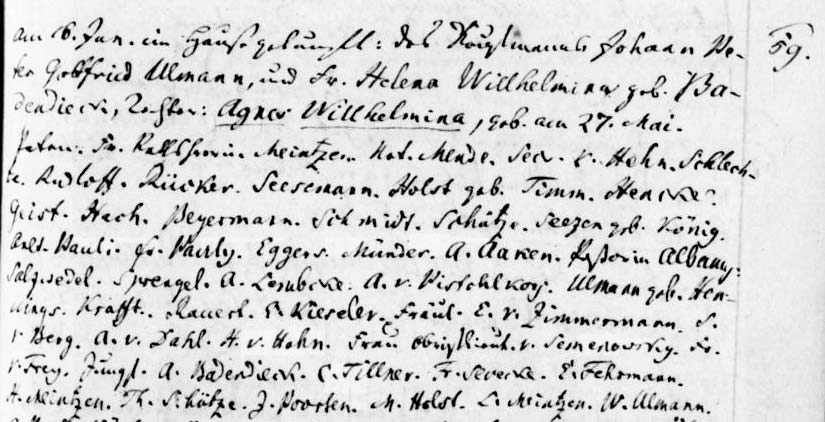 am 16. Jun. im Hause getauft: des Kaufmanns Johann Pe- 59.
ter Gottfried Ulmann, und Fr. Helena Willhelmina geb. Ba-
dendieck, Tochter: Agnes Willhelmina, geb. am 27. Mai.
Paten: Fr. Rathsherrin Meintzen. Not. Mende. Secr. v. Hehn. Schlech-
Rudloff. Rücker. Seesemann. Holst geb. Timm. Hencke.
Geist. Hach. Beyermann. Schmidt. Schütze. Seezen geb. König.
Pauli. Fr. Pauly. Eggers. Münder. A. Aaken. Pastorin Albanus.
Salzwedel. Sprengel. A. Lembcke. A. v. Ulmann geb. Hen-
nings. Krafft. Rauert. E. Kieseler. Fräul. E. v. Zimmermann. S.
v. Berg. A. v. Dahl. H. v. Hehn. Frau Obristlieut. v. Semenowsky. Fr.
v. Frey. Jungf. A. Badendieck. C. Tillner. Fr. Sevecke. E. Fehrmann.
H. Meintzen. Th. Schütze. J. Poorten. M. Holst. L. Meintzen. W. Ulmann.